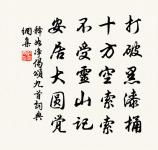 打破黑漆桶
十方空索索
不受灵山记
安居大圆觉
释如净偈颂九首词典
网集